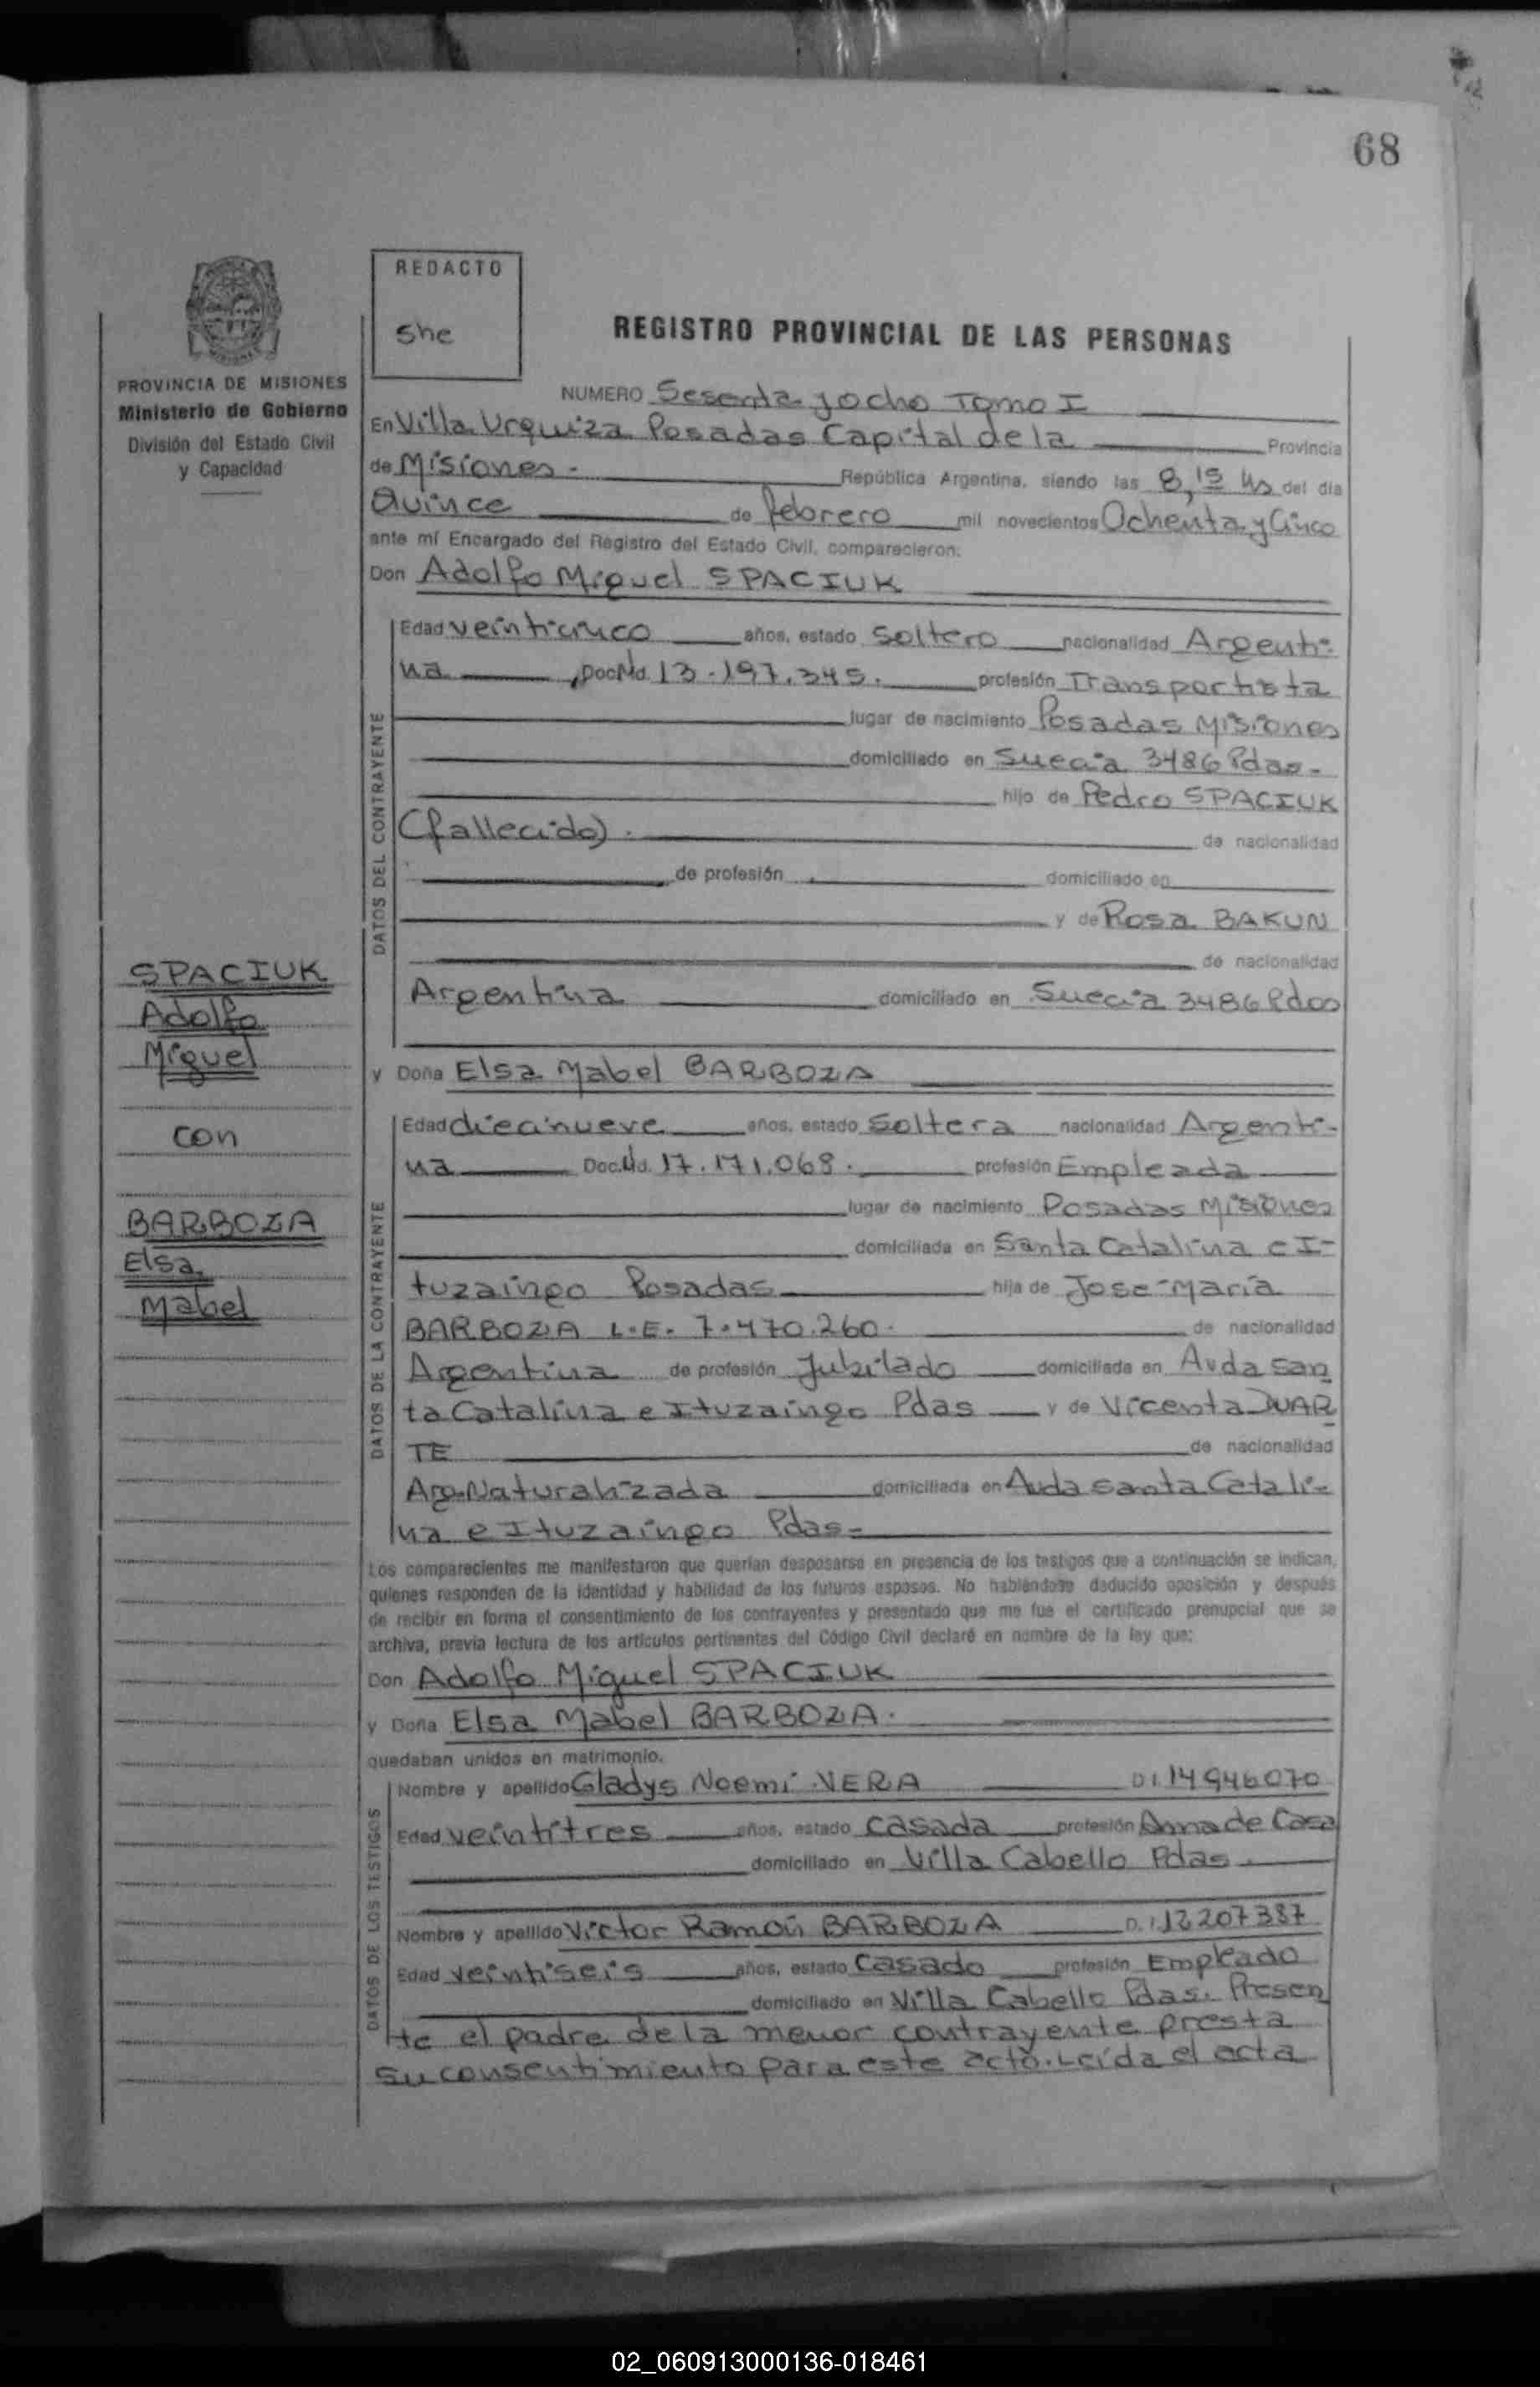 68
REDACTO
She
REGISTRO PROVINCIAL DE LAS PERSONAS
PROVINCIA DE MISIONES
Ministerio de Gobierno
División del Estado Civil
y Capacidad
NUMERO Sesenta y ocho Tomo I
En Villa Urquiza Posadas Capital de la Provincia
de Misiones - República Argentina, siendo las 8,15 hs del día
Quince de febrero mil novecientos Ochenta y Cinco
ante mí Encargado del Registro del Estado Civil, comparecieron:
Don Adolfo Miguel SPACIUK
DATOS DEL CONTRAYENTE
Edad veinticinco años, estado Soltero nacionalidad Argenti-
na , Doc. Nd. 13.197.345. profesión Transportista
lugar de nacimiento Posadas Misiones
domiciliado en Suecia 3486 Pdas-
hijo de Pedro SPACIUK
(fallecido). de nacionalidad
de profesión domiciliado en
y de Rosa BAKUN
de nacionalidad
Argentina domiciliado en Suecia 3486 Pdas
SPACIUK
Adolfo
Miguel
con
BARBOZA
Elsa
Mabel
y Doña Elsa Mabel BARBOZA
DATOS DE LA CONTRAYENTE
Edad diecinueve años, estado Soltera nacionalidad Argenti-
na Doc. Nd. 17.171.068. profesión Empleada
lugar de nacimiento Posadas Misiones
domiciliada en Santa Catalina e I-
tuzaingo Posadas hija de Jose Maria
BARBOZA L.E. 7.470.260. de nacionalidad
Argentina de profesión Jubilado domiciliada en Avda San
ta Catalina e Ituzaingo Pdas y de Vicenta DUAR
TE de nacionalidad
Arg. Naturalizada domiciliada en Avda Santa Catali-
na e Ituzaingo Pdas-
Los comparecientes me manifestaron que querían desposarse en presencia de los testigos que a continuación se indican,
quienes responden de la identidad y habilidad de los futuros esposos. No habiéndose deducido oposición y después
de recibir en forma el consentimiento de los contrayentes y presentado que me fue el certificado prenupcial que se
archiva, previa lectura de los artículos pertinentes del Código Civil declaré en nombre de la ley que:
Don Adolfo Miguel SPACIUK
y Doña Elsa Mabel BARBOZA.
quedaban unidos en matrimonio.
DATOS DE LOS TESTIGOS
Nombre y apellido Gladys Noemi VERA D.I. 14946070
Edad veintitres años, estado Casada profesión Ama de Casa
domiciliado en Villa Cabello Pdas.
Nombre y apellido Victor Ramón BARBOZA D.I. 12207387
Edad veintiseis años, estado Casado profesión Empleado
domiciliado en Villa Cabello Pdas. Presen
te el padre de la menor contrayente presta
su consentimiento para este acto. Leída el acta
02_060913000136-018461